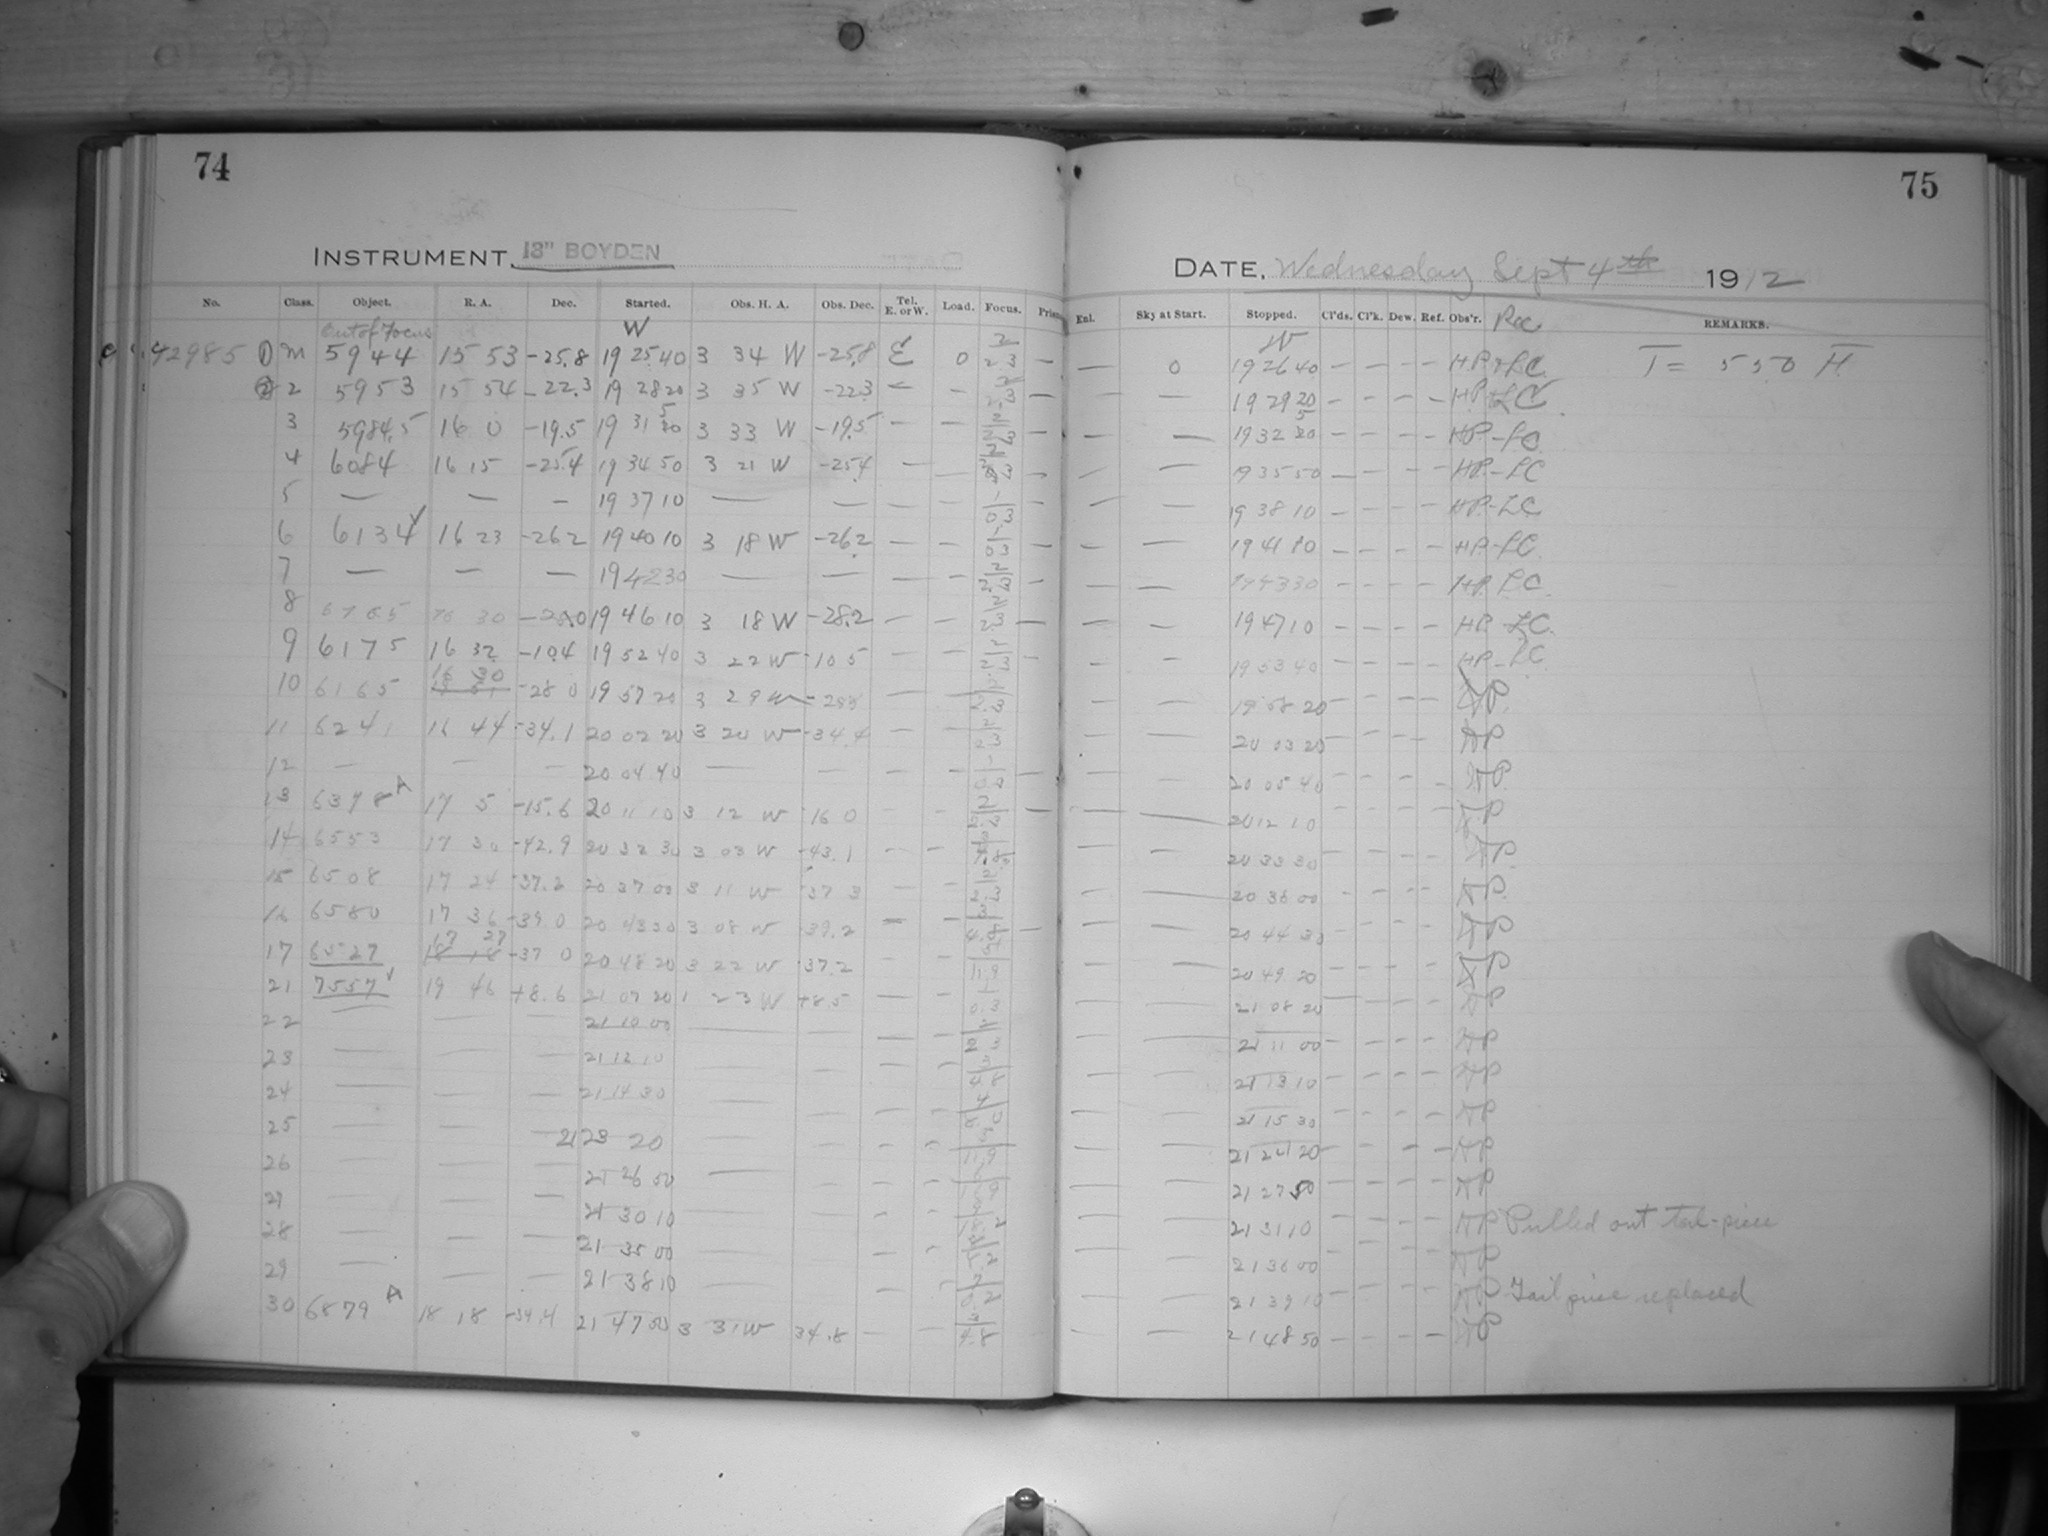 74
INSTRUMENT, 13" BOYDEN
No. Class. Object. R. A. Dec. Started. Obs. H. A. Obs. Dec. Tel. E. or W. Load. Focus.
Out of Focus W
42985 1 m 5944 15 53 -25.8 19 25 40 3 34 W -25.8 E 0 2.3 —
2 2 5953 15 54 -22.3 19 28 20 3 35 W -22.3
3 5984.5 16 0 -19.5 19 31 3 33 W -19.5 — —
4 6084 16 15 -25.4 19 34 50 3 21 W -25.4 —
5 — — — 19 37 10 — — — — 0.3 —
6 6134 16 23 -26.2 19 40 10 3 18 W -26.2 — — 0.3 —
7 — — — 19 42 30 — — — — 2.3 —
8 30 19 46 10 3 18 W -28.2 — — 2.3 —
9 6175 16 32 -10.4 19 52 40 3 22 W -10.5 — —
10 6165 16 30 -28 0 19 57 20 3 29 W — —
11 6241 16 44 -34.1 20 02 20 3 20 W -34.4 — — 2.3
12 — — — 20 04 40 — — — —
13 6378 A 17 5 -15.6 20 11 10 3 12 W 16 0
14 6553 17 30 -42.9 20 32 30 3 03 W -43.1 — —
15 6508 17 24 -37.2 20 37 00 3 11 W -37 3 — —
16 6580 17 36 -39 0 20 43 30 3 08 W -39.2 — —
17 6527 17 27 -37 0 20 48 20 3 22 W -37.2 — — 11.9
21 7557 19 46 +8.6 21 07 20 1 23 W +8.5 — — 0.3
22 — — — 21 10 00 — — — —
23 — — — 21 12 10 — — — — 4.8
24 — — — 21 14 30 — — — —
25 — — 21 23 20 — — — — 11.9
26 — — — 21 26 50 — — — —
27 — — — 21 30 10 — — — —
28 — — — 21 35 00 — — — —
29 — — — 21 38 10 — — — —
30 6879 A 18 18 -34.4 21 47 50 3 31 W 34.8 — — 4.8
75
DATE, Wednesday Sept 4th 1912
Enl. Sky at Start. Stopped. Cl'ds. Cl'k. Dew. Ref. Obs'r. Rec REMARKS.
W
— 0 19 26 40 — — — — HP-LC. T = 55.0 H
— — 19 29 20 — — — — HP-LC
— — 19 32 — — — — HP-LC
— — 19 35 50 — — — — HP-LC
— — 19 38 10 — — — — HP-LC
— — 19 41 10 — — — — HP-LC
— — 19 43 30 — — — — HP LC.
— — 19 47 10 — — — — HP-LC.
— — 19 53 40 — — — — HP-LC
— — 19 58 20 — — — — HP.
— — 20 03 20 — — — — HP
— — 20 05 40 — — — — HP.
— — 20 12 10 — — — — HP
— — 20 33 30 — — — — HP.
— — 20 38 00 — — — — HP.
— — 20 44 30 — — — — HP
— — 20 49 20 — — — — HP
— — 21 08 20 — — — — HP
— — 21 11 00 — — — — HP
— — 21 13 10 — — — — HP
— — 21 15 30 — — — — HP
— — 21 24 20 — — — — HP
— — 21 27 50 — — — — HP
— — 21 31 10 — — — — HP Pulled out tail-piece
— — 21 36 00 — — — — HP
— — 21 39 10 — — — — HP Tail piece replaced
— — 21 48 50 — — — — HP